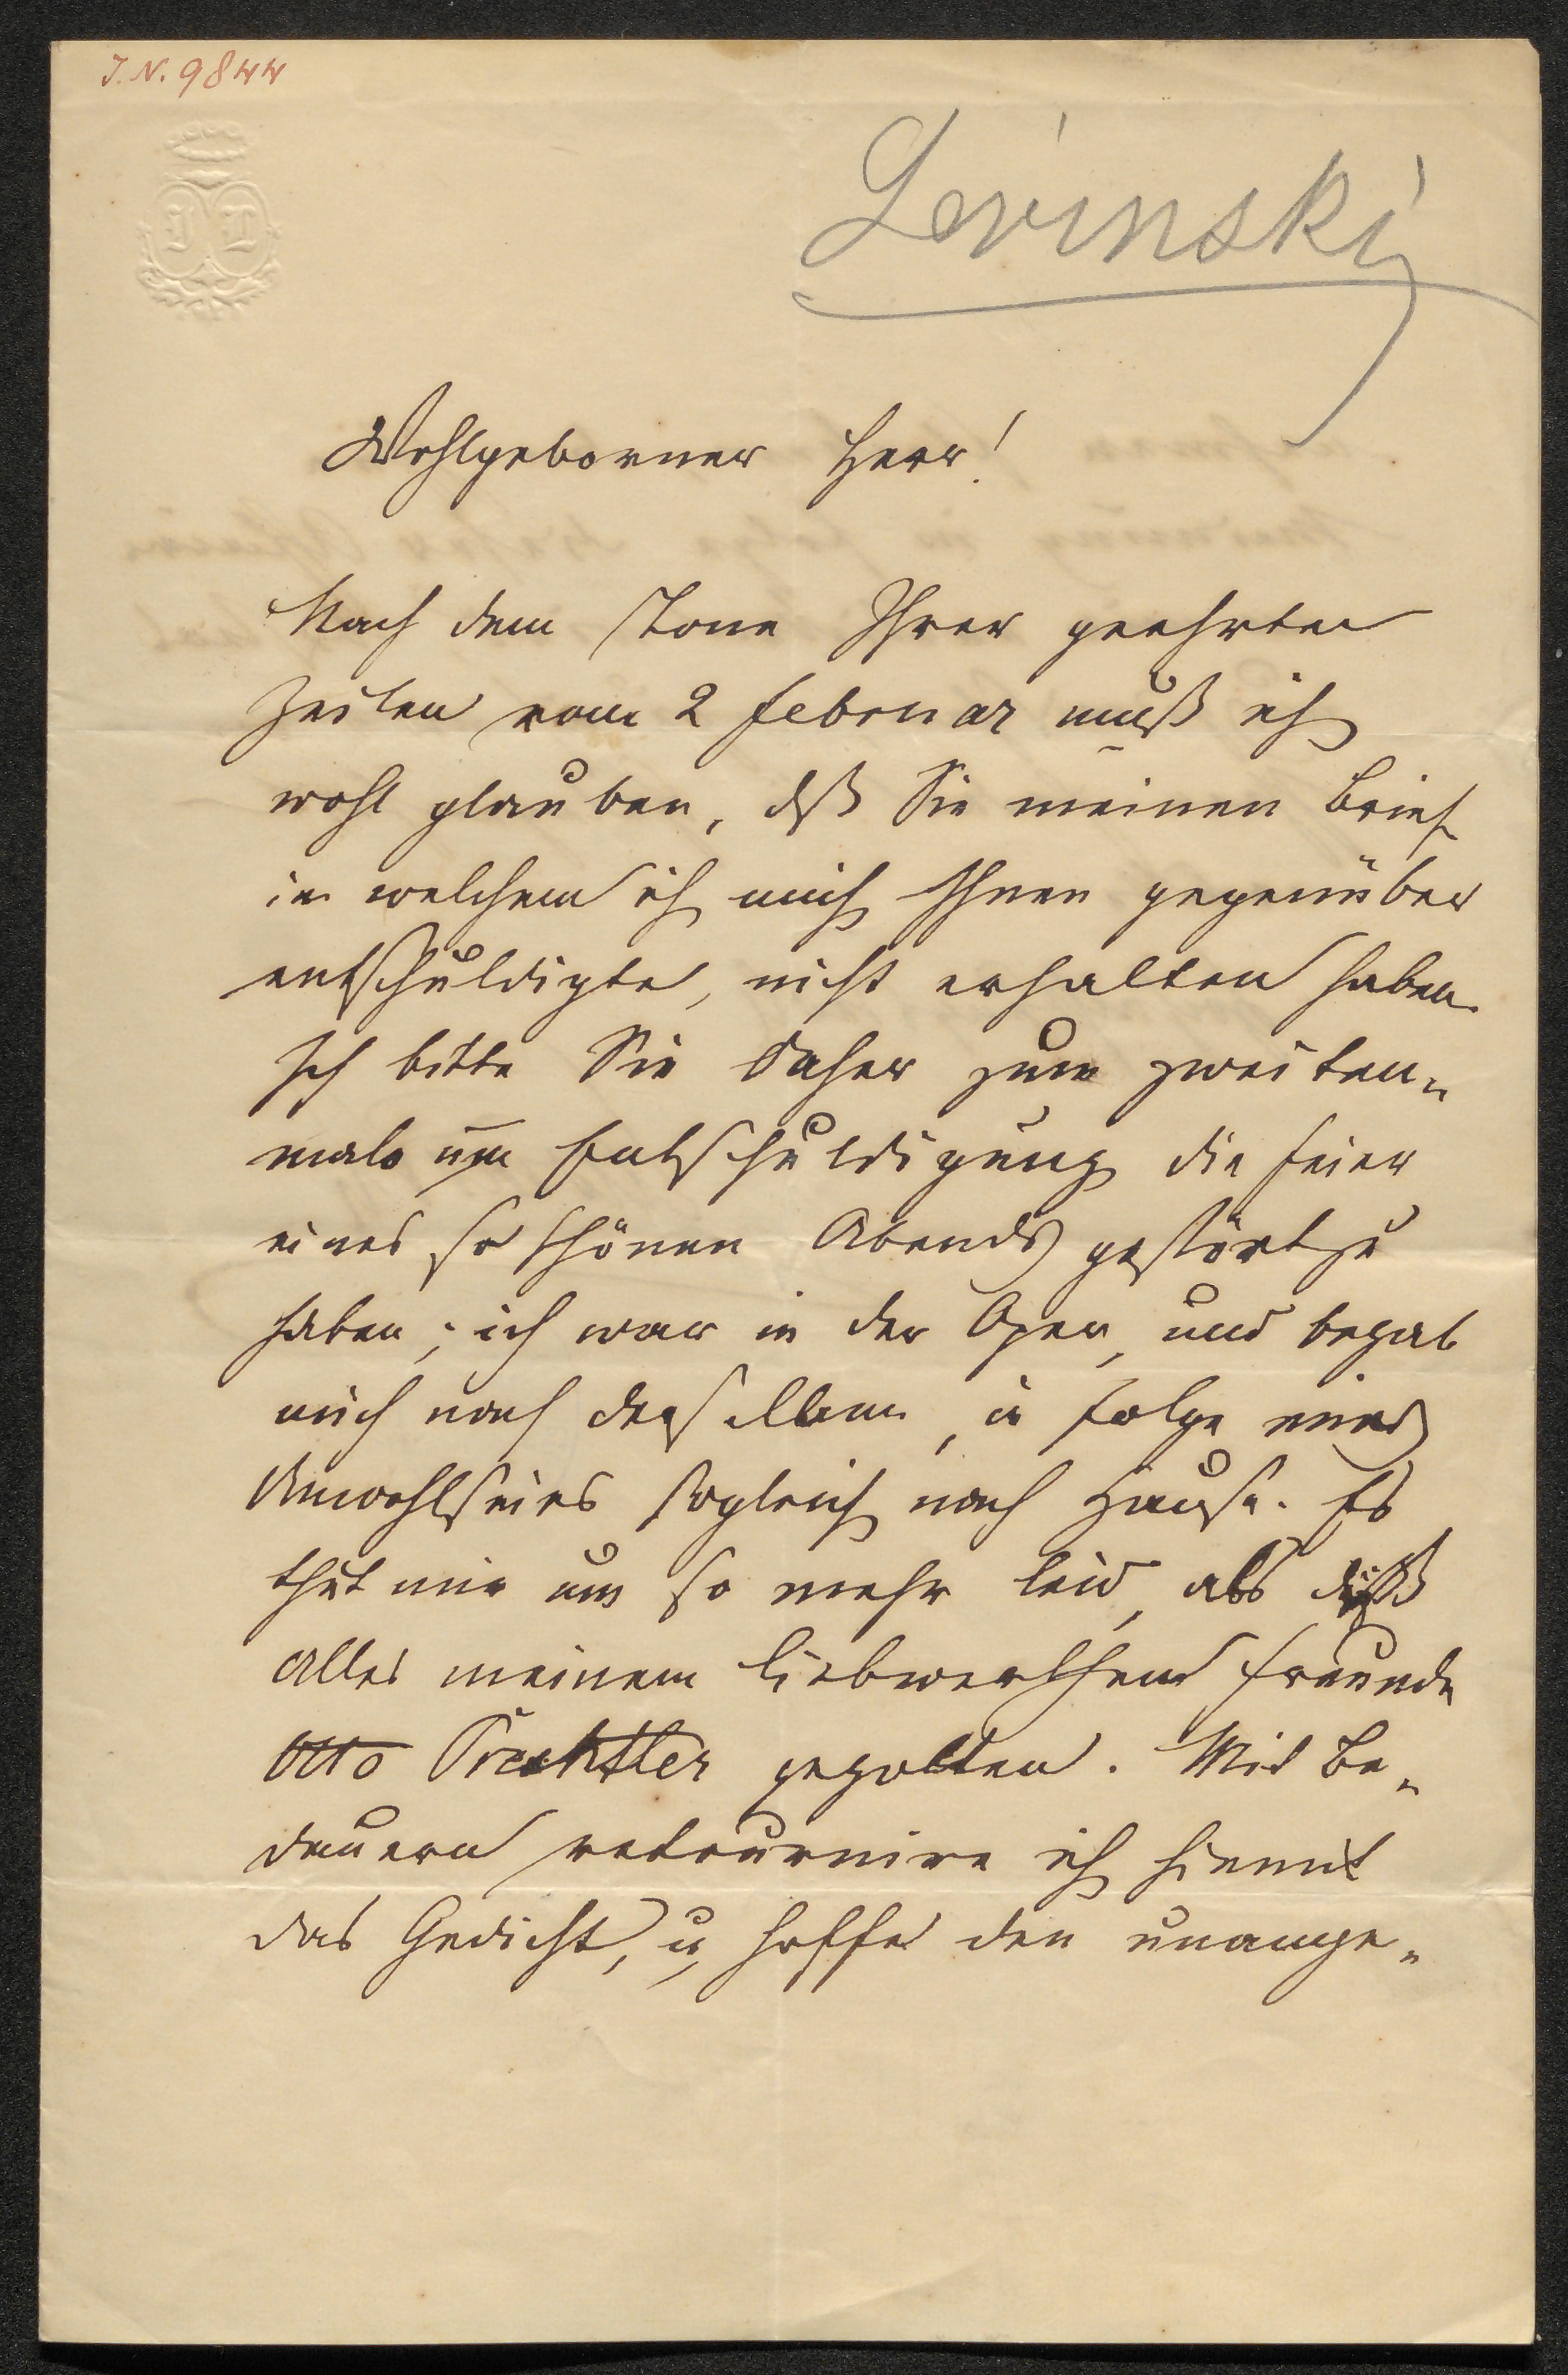 J.N. 9844
Lewinski
Wohlgeborner Herr!
Nach dem Tone Ihrer geehrten
Zeilen vom 2 Februar muß ich
wohl glauben, dß Sie meinen Brief
in welchem ich mich Ihnen gegenüber
entschuldigte, nicht erhalten haben.
Ich bitte Sie daher zum zweiten-
male um Entschuldigung die Feier
eines so schönen Abends gestört zu
haben; ich war in der Oper, und begab
mich nach derselben, in Folge eines
Unwohlseins sogleich nach Hause. Es
thut mir um so mehr leid, als dieß
alles meinem liebwerthen Freunde
Otto Prechtler gegolten. Mit Be-
dauern retournire ich hiemit
das Gedicht, u hoffe den unange-